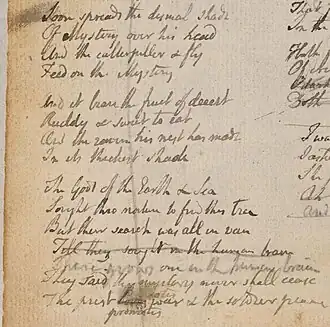 Soon spreads the dismal shade
Of Mystery over his head
And the catterpiller & fly
Feed on the Mystery
And it bears the fruit of deceit
Ruddy & sweet to eat
And the raven his nest has made
In its thickest shade
The Gods of the Earth & Sea
Sought thro nature to find this tree
But their search was all in vain
Till they sought in the human brain
There grows one in the human brain
They said this mystery never shall cease
The priest loves war & the soldier peace
promotes